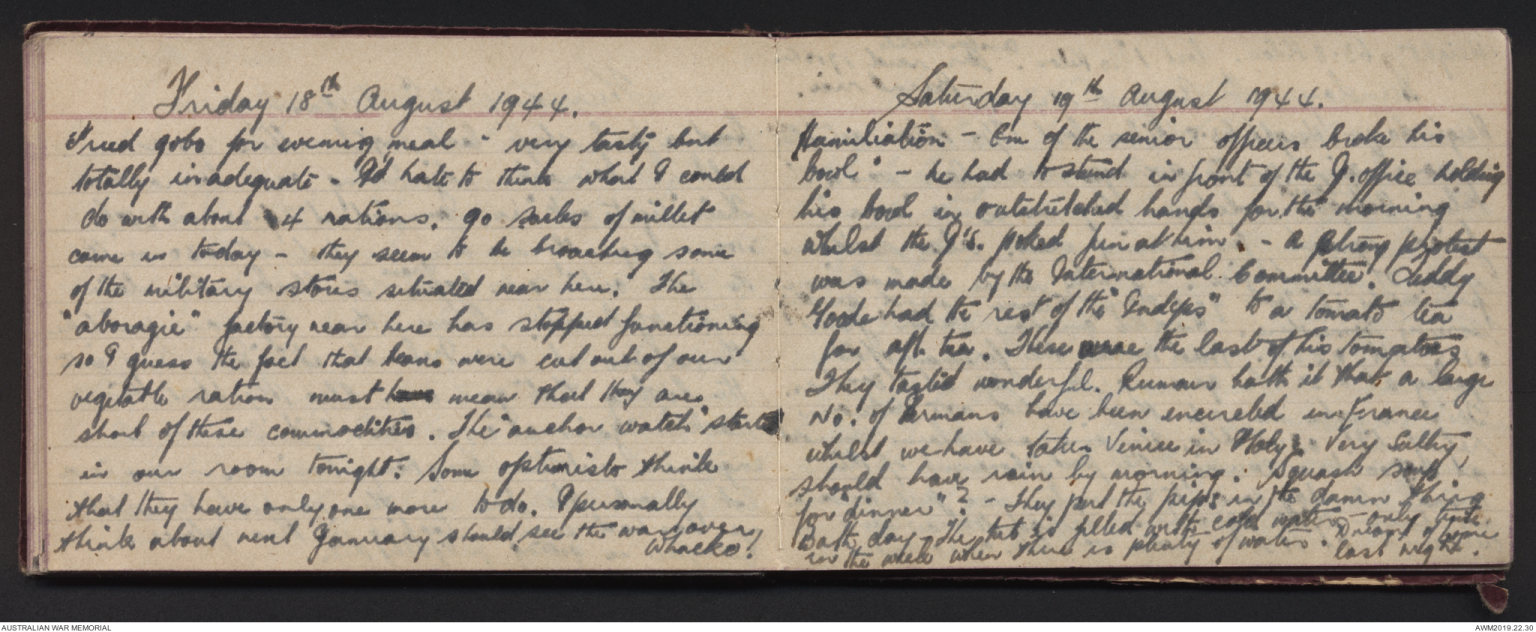 Friday 18th August 1944.
Fried gobo for evening meal - very tasty but
totally inadequate - I'd hate to think what I could
do with about 4 rations. 90 sacks of millet
came in today - they seem to be broaching some
of the military stores situated near here. The
"aboragie" factory near here has stopped functioning
so I guess the fact that beans were cut out of our
vegetable ration must have mean that they are
short of these commodities. The "anchor watch" starts
in our room tonight: Some optimists think
that they have only one more to do. I personally
think about next January should see the war over
Whacko!
Saturday 19th August 1944.
Humiliation - One of the senior officers broke his
bowl - he had to stand in front of the J. office holding
his bowl in outstretched hands for the morning
whilst the J's. poked fun at him. - A strong protest
was made by the International Committee.
Goode had the rest of the "Indeps" to a tomato tea
for aft. tea. These were the last of his tomatoes
They tasted wonderful. Rumour hath it that a large
No. of Germans have been encircled in France
whilst we have taken Venice in Italy? Very Sultry,
should have rain by morning. Squash soup
for "dinner"? - They put the pips in the damn thing
Bath day - The tub is filled with cold water - only time
in the week when there is plenty of water. Dreamt of home
last night.
AUSTRALIAN WAR MEMORIAL
AWM2019.22.30